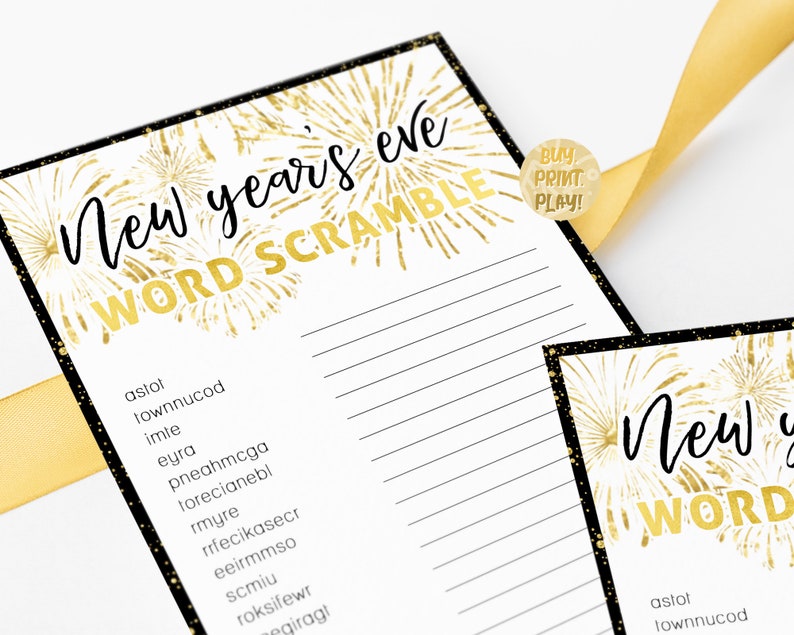 New year's eve
WORD SCRAMBLE
BUY.
PRINT.
PLAY!
astot
townnucod
imte
eyra
pneahmcga
torecianebl
rmyre
rrfecikasecr
eeirmmso
scmiu
roksifewr
New y
WORD
astot
townnucod